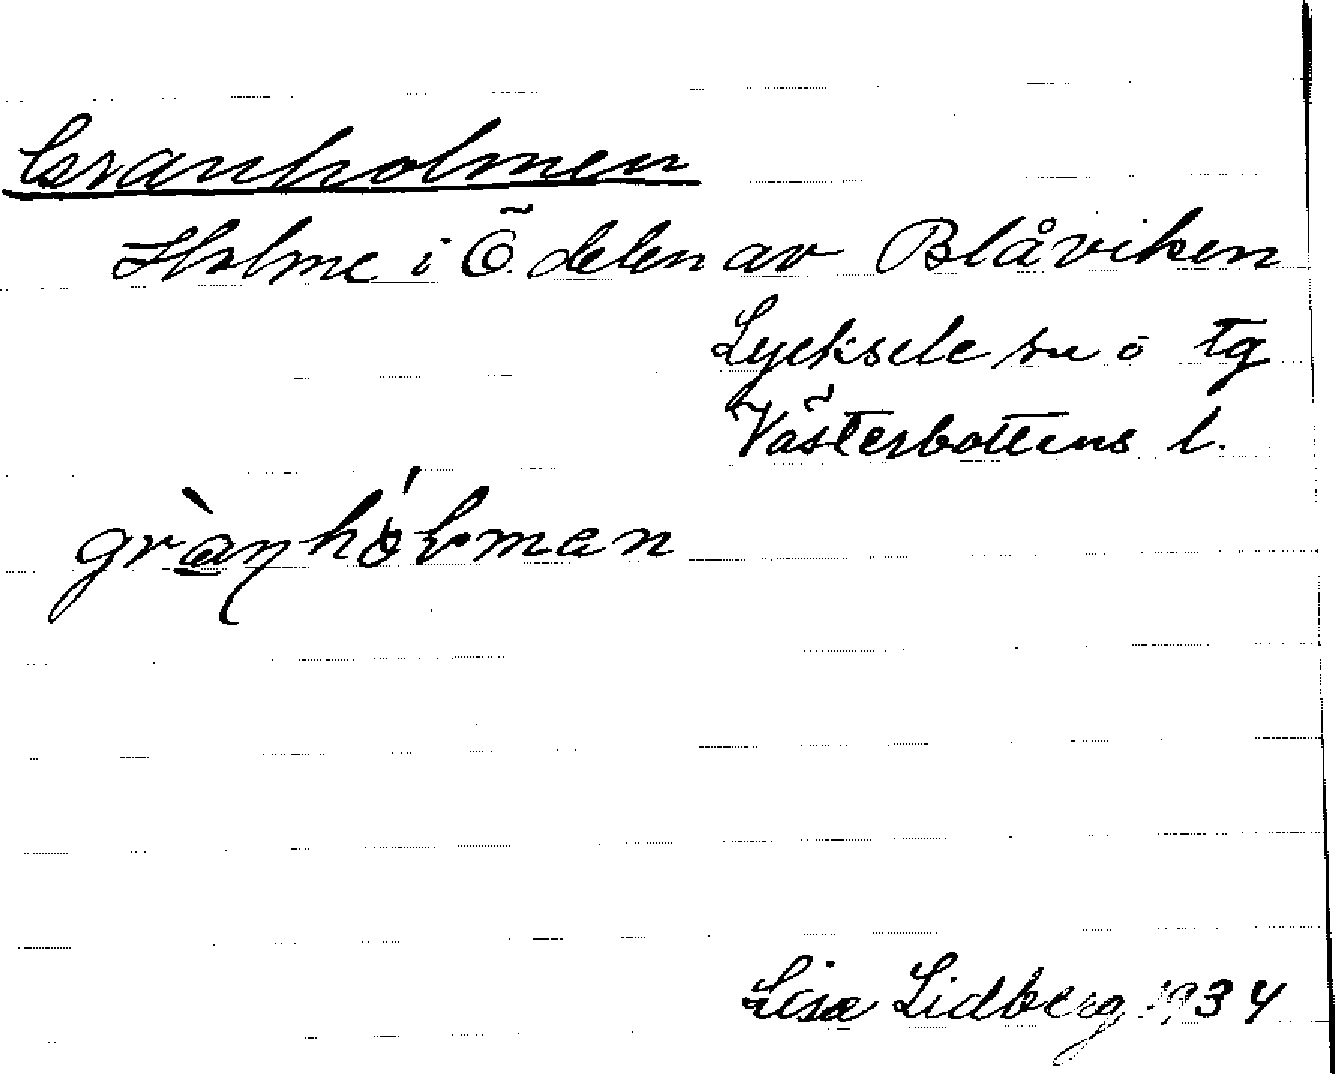 Granholmen
Holme i Ö. delen av Blåviken
Lycksele sn o tg
Västerbottens l.
grànhólman
Lisa Lidberg 1934